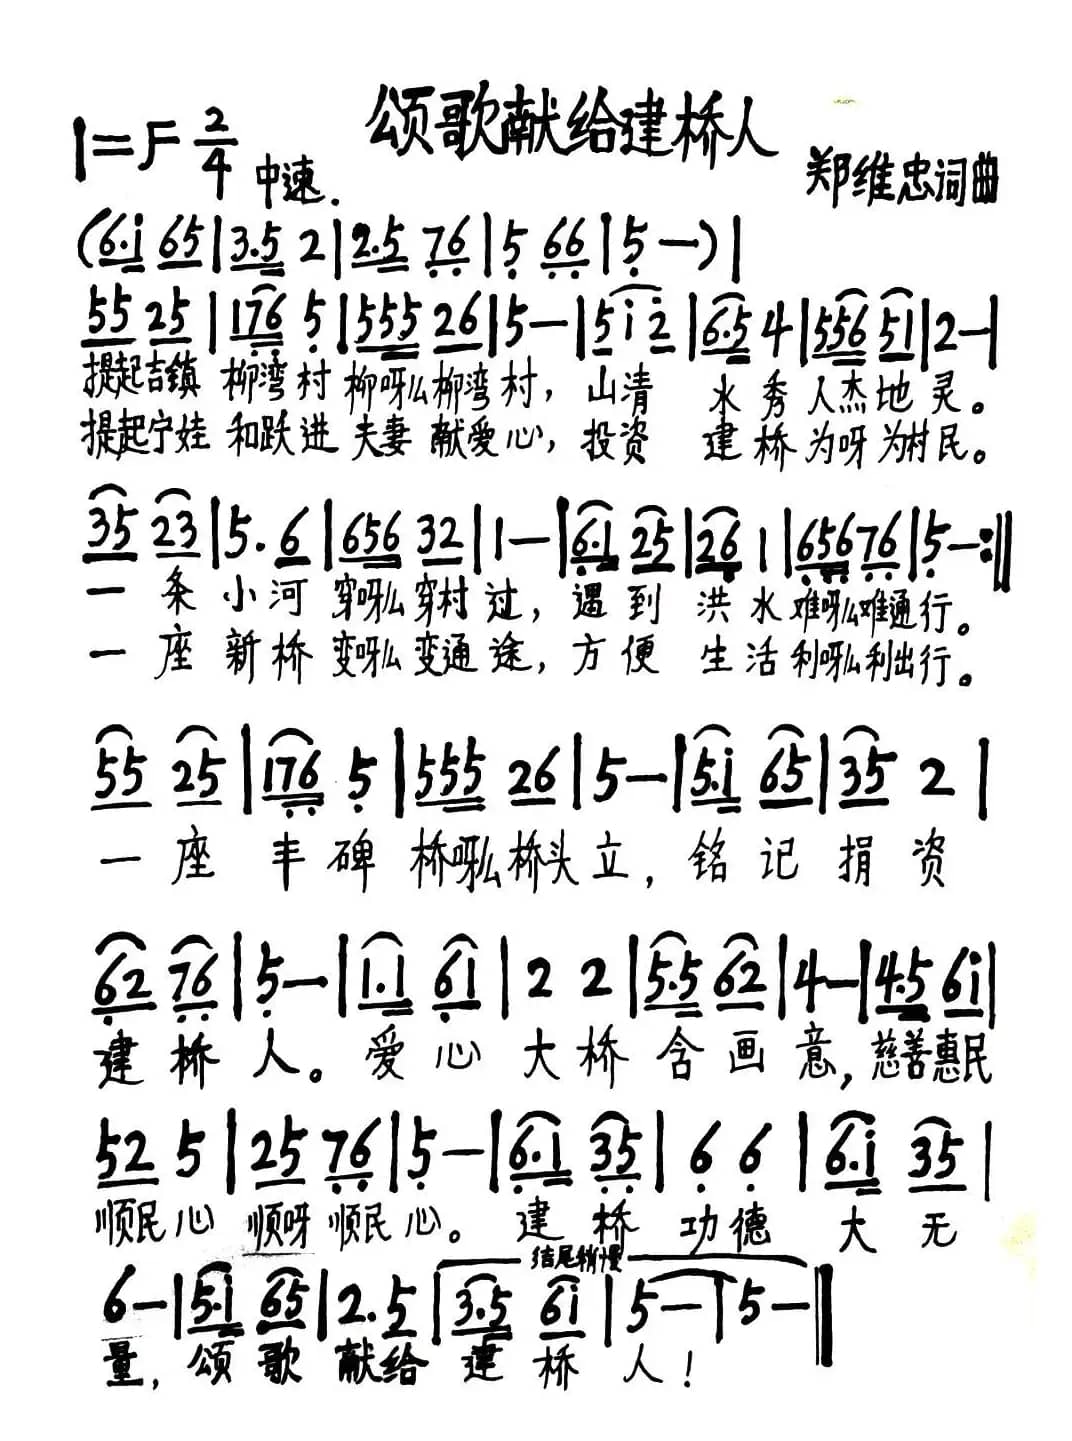 颂歌献给建桥人
1=F 2/4 中速.
郑维忠词曲
(6.i 65|3.5 2|2.5 76|5 66|5—)|
55 25|176 5|555 26|5—|5 i 2|6.5 4|556 51|2—|
提起吉镇 柳湾村 柳呀么柳湾村，山清 水秀人杰地灵。
提起宁娃 和跃进 夫妻献爱心，投资 建桥为呀为村民。
35 23|5. 6|656 32|1—|6.1 25|26 1|656 76|5—:||
一条小河 穿呀么穿村过，遇到 洪水难呀么难通行。
一座新桥 变呀么变通途，方便 生活利呀么利出行。
55 25|176 5|555 26|5—|5.i 65|35 2|
一座丰碑 桥呀么桥头立，铭记捐资
62 76|5—|1.1 61|2 2|55 62|4—|4.5 6i|
建桥人。爱心大桥含画意，慈善惠民
52 5|25 76|5—|6.1 35|6 6|6.i 35|
顺民心 顺呀顺民心。建桥功德大无
结尾稍慢
6—|5.i 65|2. 5|3.5 6i|5—|5—||
量，颂歌献给建桥人！